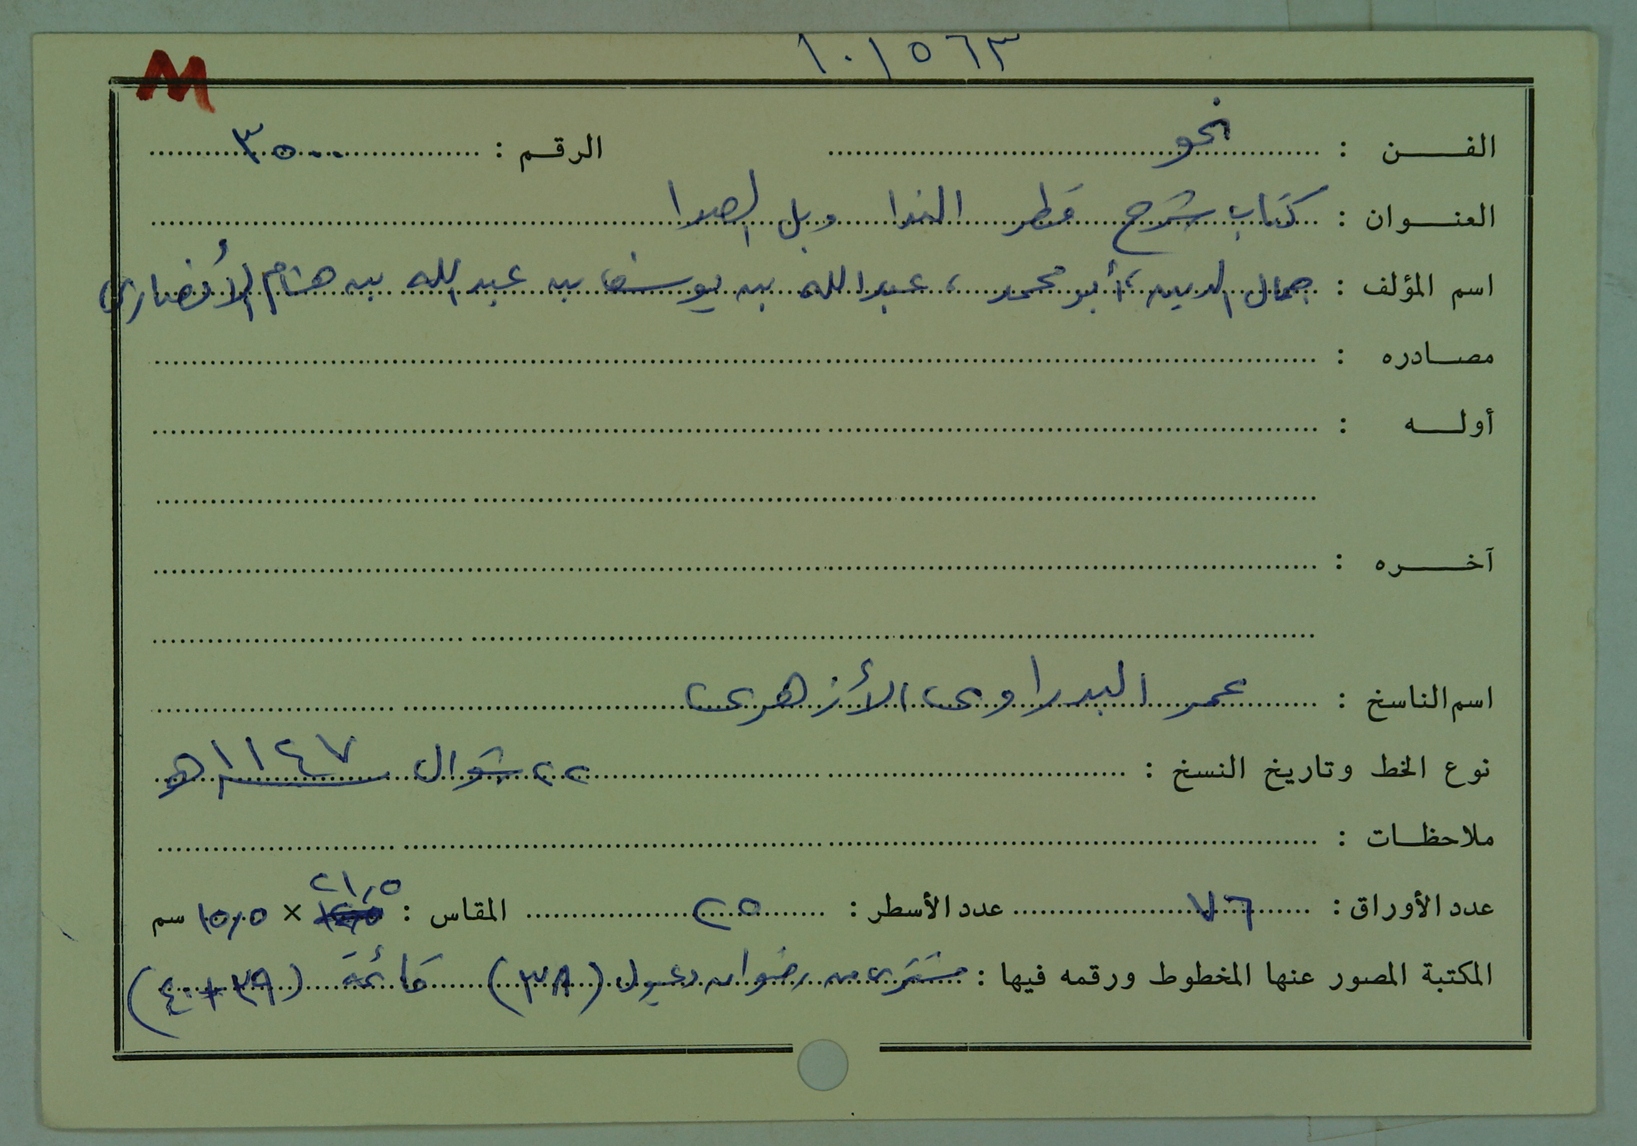 ١٠١٥٦٣
M
الفن : نحو الرقم : ٣٥٠٠
العنوان : كتاب شرح قطر الندا وبل الصدا
اسم المؤلف : جمال الدين، أبو محمد، عبدالله بن يوسف بن عبدالله بن هشام الأنصاري
مصادره :
أوله :
آخره :
اسم الناسخ : عمر البدراوي الأزهري
نوع الخط وتاريخ النسخ : ٢٢ شوال ١١٤٧ هـ
ملاحظات :
عدد الأوراق : ٧٦ عدد الأسطر : ٢٥ المقاس : ٢١,٥ × ١٥,٥ سم
المكتبة المصور عنها المخطوط ورقمه فيها : مشترى من رضوان دعبول (٣٨) قائمة (٣٩ + ٤٠)